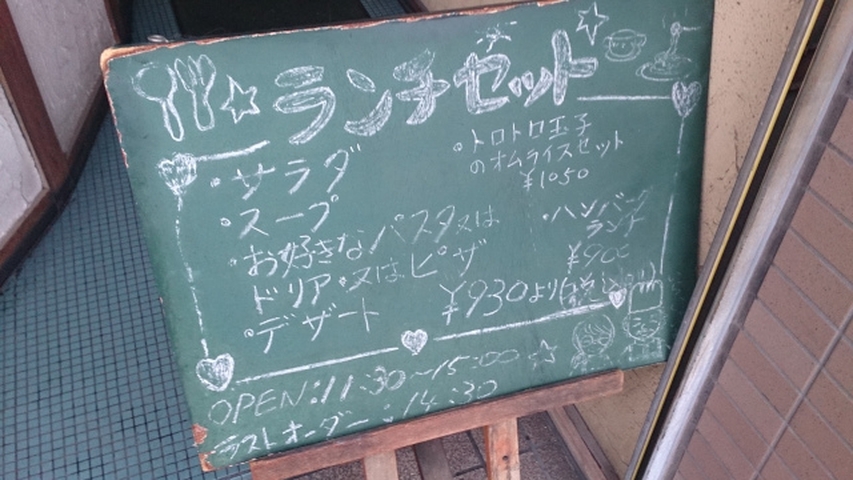 ランチセット
・サラダ
・スープ
・お好きなパスタ又は
ドリア・又はピザ
・デザート
¥930より
・トロトロ玉子
のオムライスセット
¥1050
・ハンバーグ
ランチ
¥900
OPEN:11:30~15:00
ラストオーダー:14:30